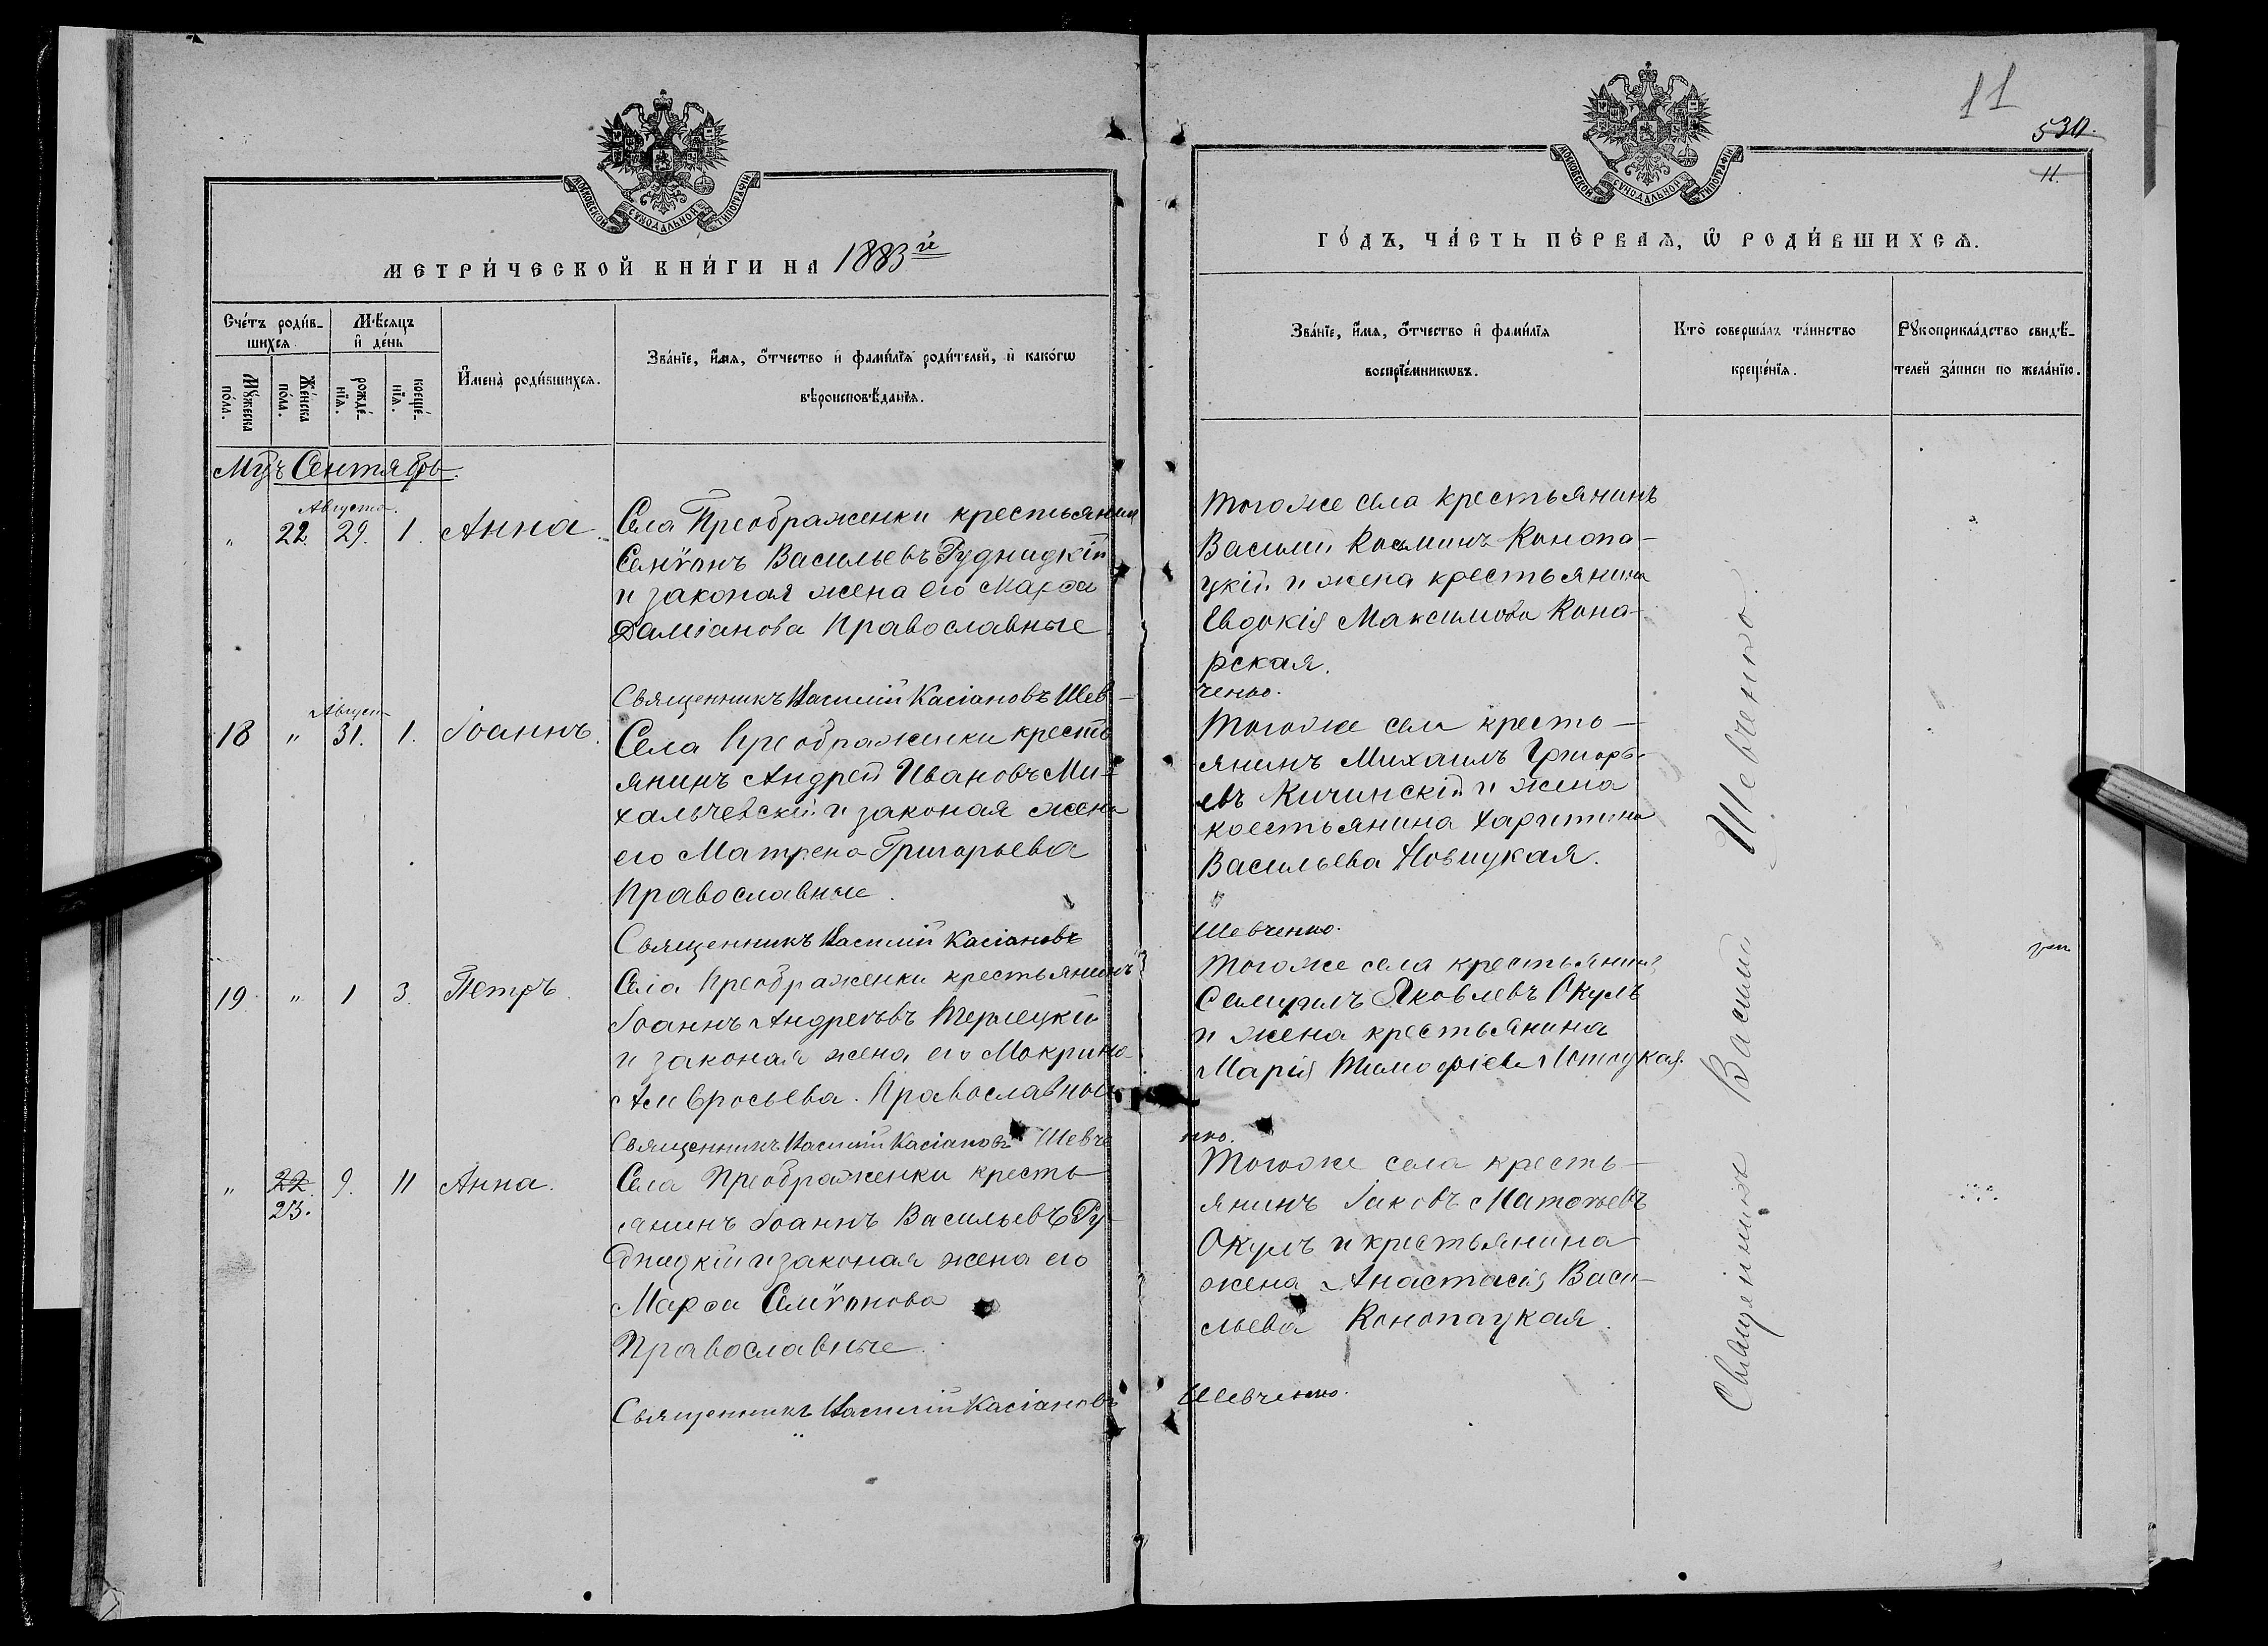 МОСКОВСКОЙ СѴНОДАЛЬНОЙ ТИПОГРАФІИ
МЕТРИ́ЧЕСКОЙ КНИ́ГИ НА 1883й
Сче́тъ роди́в-
шихся
Мѣ́сяцъ
и҆ де́нь
И҆мена̀ роди́вшихся.
Зва́нїе, и҆́мя, ѻ҆́тчество и҆ фами́лїя роди́телей, и҆ како́гѡ
вѣроисповѣ́данїя.
Мꙋ́жеска
по́ла.
Же́нска
по́ла.
рожде́-
нїя.
креще́-
нїя.
Мцъ Сентябрь.
Августа.
" 22. 29. 1. Анна.
Села Преображенки крестьянин
Семѵонъ Васильевъ Рудницкій
и законая жена его Марѳа
Даміанова Православные
Священникъ Василій Касіановъ Шев-
Август
18 " 31. 1. Іоаннъ.
Села Преображенки кресть
янинъ Андрей Ивановъ Ми-
хальчевскій и законая жена
его Матрена Григорьева
Православные.
Священникъ Василій Касіановъ
19 " 1 3. Петръ.
Села Преображенки крестьянинъ
Іоаннъ Андреевъ Терлецкій
и законая жена его Макрина
Амвросьева. Православные
Священникъ Василій Касіановъ Шевче
" 22. 9. 11 Анна.
23.
Села Преображенки кресть
янинъ Іоаннъ Васильевъ Ру-
дницкій и законая жена его
Марѳа Семѵонова
Православные.
Священникъ Василій Касіановъ
11
530.
11.
МОСКОВСКОЙ СѴНОДАЛЬНОЙ ТИПОГРАФІИ
ГО́ДЪ, ЧА́СТЬ ПЕ́РВАЯ, Ѡ҆ РОДИ́ВШИХСЯ.
Зва́нїе, и҆́мя, ѻ҆́тчество и҆ фами́лїя
воспрїе́мникѡвъ.
Кто̀ соверша́лъ та́инство
креще́нїя.
Рꙋкоприкла́дство свидѣ́-
телей за́писи по жела́нїю.
тогоже села крестьянинъ
Василій Косминъ Конопа-
цкій и жена крестьянина
Евдокія Максимова Кона-
рская.
ченко.
тогоже села кресть-
янинъ Михаилъ Григорь-
евъ Кичинскій и жена
крестьянина Харитина
Васильева Новицкая.
Шевченко.
тогоже села крестьянинъ
Самуилъ Яковлевъ Окулъ
и жена крестьянина
Марія Тимофіева
нко.
Тогоже села кресть-
янинъ Іаковъ Матѳеевъ
Окулъ и крестьянина
жена Анастасія Васи-
льева Конопацкая.
Шевченко.
Священникъ Василій Шевченко.